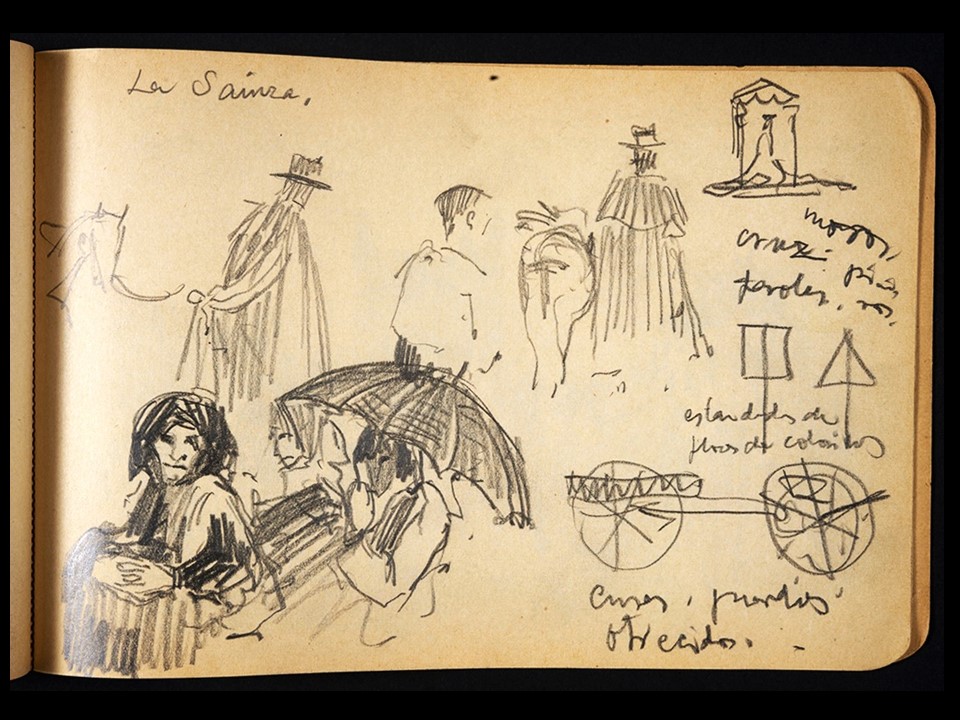 La Sainza.
mozos,
cruz.
faroles.
estandartes de
flores de colorines
curas, guardias
ofrecidos.